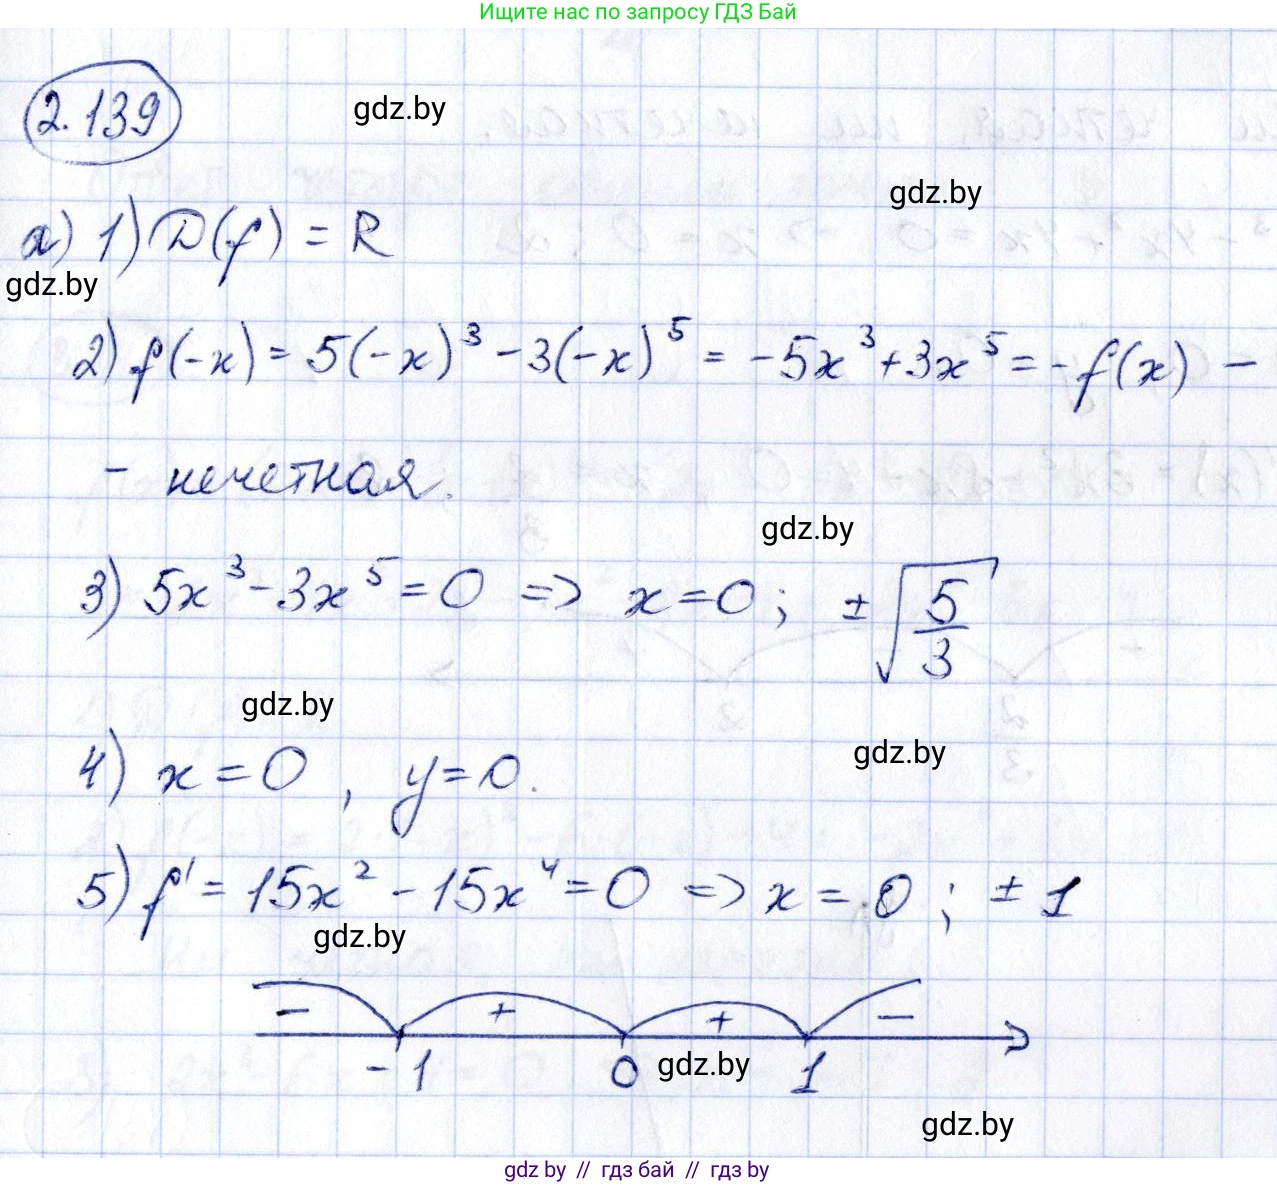 Ищите нас по запросу ГДЗ Бай
2.139
gdz.by
gdz.by
а) 1) D(f) = R
gdz.by
2) f(-x) = 5(-x)³ - 3(-x)⁵ = -5x³ + 3x⁵ = -f(x) -
- нечетная.
gdz.by
3) 5x³ - 3x⁵ = 0 => x = 0; ±√(5/3)
gdz.by
gdz.by
4) x = 0, y = 0.
5) f' = 15x² - 15x⁴ = 0 => x = 0; ± 1
gdz.by
- + + -
-1 0 1
gdz.by
gdz.by
gdz by // гдз бай // gdz by